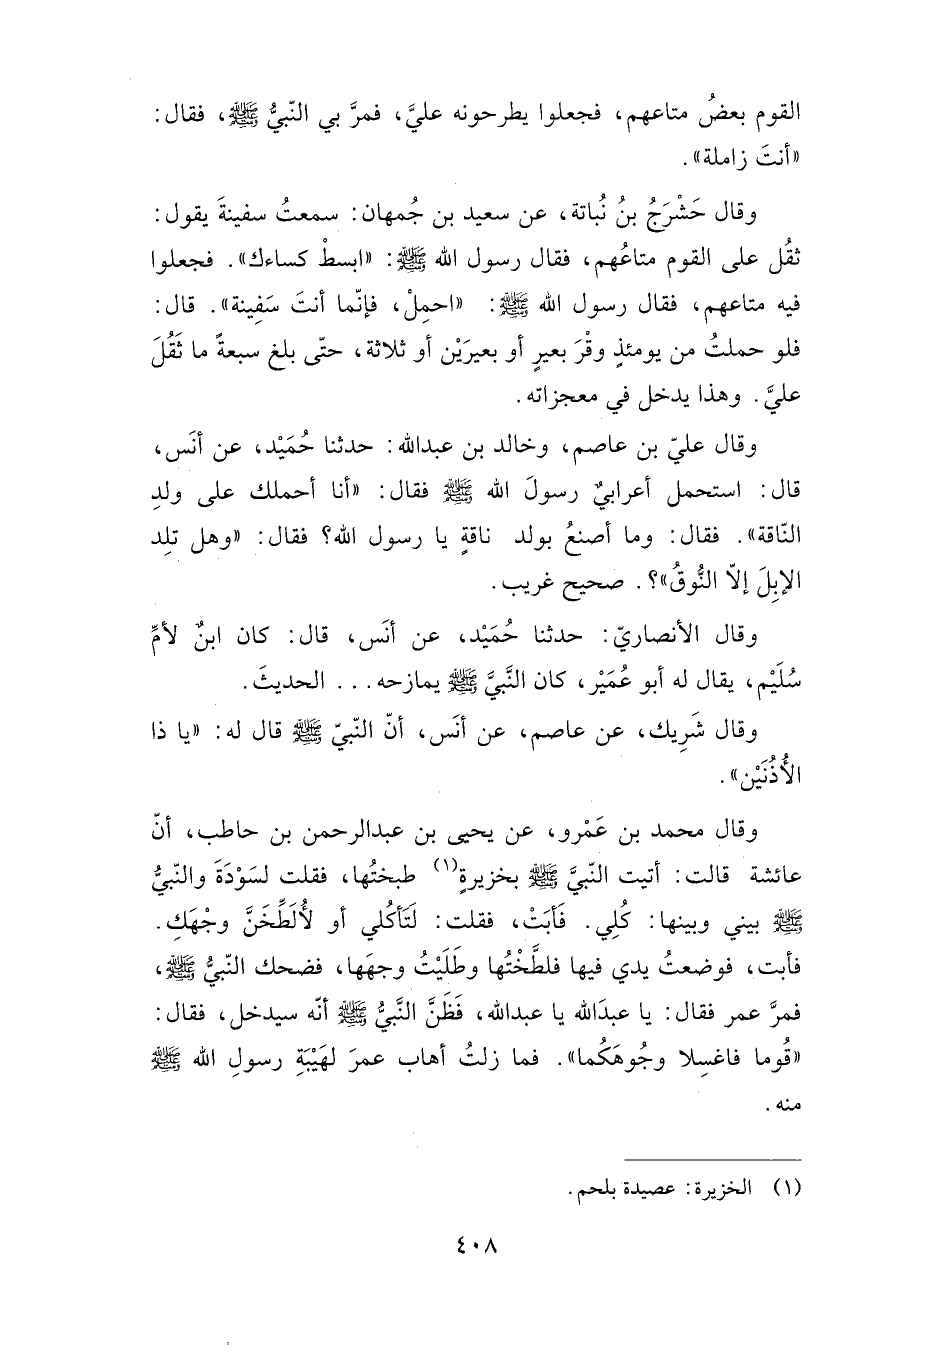 القوم بعضُ متاعهم، فجعلوا يطرحونه عليَّ، فمرَّ بي النّبيُّ ﷺ، فقال:
«أنتَ زاملة».
وقال حَشْرَجُ بنُ نُباتة، عن سعيد بن جُمهان: سمعتُ سفينةَ يقول:
ثقُل على القوم متاعُهم، فقال رسول الله ﷺ: «ابسطْ كساءك». فجعلوا
فيه متاعهم، فقال رسول الله ﷺ: «احمِلْ، فإنّما أنتَ سَفِينة». قال:
فلو حملتُ من يومئذٍ وقْرَ بعيرٍ أو بعيرَيْن أو ثلاثة، حتّى بلغ سبعةً ما ثَقُلَ
عليَّ. وهذا يدخل في معجزاته.
وقال عليّ بن عاصم، وخالد بن عبدالله: حدثنا حُمَيْد، عن أنَس،
قال: استحمل أعرابيٌ رسولَ الله ﷺ فقال: «أنا أحملك على ولدِ
النّاقة». فقال: وما أصنعُ بولد ناقةٍ يا رسول الله؟ فقال: «وهل تلِد
الإبِلَ إلاّ النُّوقُ»؟. صحيح غريب.
وقال الأنصاريّ: حدثنا حُمَيْد، عن أنَس، قال: كان ابنٌ لأمِّ
سُلَيْم، يقال له أبو عُمَيْر، كان النَّبيَّ ﷺ يمازحه... الحديثَ.
وقال شَرِيك، عن عاصم، عن أنَس، أنّ النّبيّ ﷺ قال له: «يا ذا
الأُذُنَيْن».
وقال محمد بن عَمْرو، عن يحيى بن عبدالرحمن بن حاطب، أنّ
عائشة قالت: أتيت النّبيَّ ﷺ بخزيرةٍ(١) طبختُها، فقلت لسَوْدَةَ والنّبيُّ
ﷺ بيني وبينها: كُلِي. فَأبَتْ، فقلت: لَتَأكُلي أو لأُلَطِّخَنَّ وجْهَكِ.
فأبت، فوضعتُ يدي فيها فلطَّخْتُها وطَلَيْتُ وجهَها، فضحك النّبيُّ ﷺ،
فمرَّ عمر فقال: يا عبدَالله يا عبدالله، فَظَنَّ النَّبيُّ ﷺ أنّه سيدخل، فقال:
«قُوما فاغسِلا وجُوهَكُما». فما زلتُ أهاب عمرَ لهَيْبَةِ رسولِ الله ﷺ
منه.
(١) الخزيرة: عصيدة بلحم.
٤٠٨